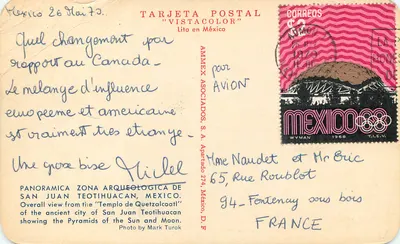 Mexico 26 Mai 73.
Quel changement par
rapport au Canada_
Le mélange d'influence
européenne et americaine
est vraiment très etrange_
Une grosse bise
TARJETA POSTAL
"VISTACOLOR"
Lito en México
PANORAMICA ZONA ARQUEOLOGICA DE
SAN JUAN TEOTIHUACAN, MEXICO.
Overall view from the "Templo de Quetzalcoatl"
of the ancient city of San Juan Teotihuacan
showing the Pyramids of the Sun and Moon.
Photo by Mark Turok
AMMEX ASOCIADOS, S. A. Apartado 274, México, D. F.
par
AVION
CORREOS
$2
MEXICO68
1968
Mme Naudet et Mr Eric
65, Rue Roublot
94- Fontenay sous bois
FRANCE